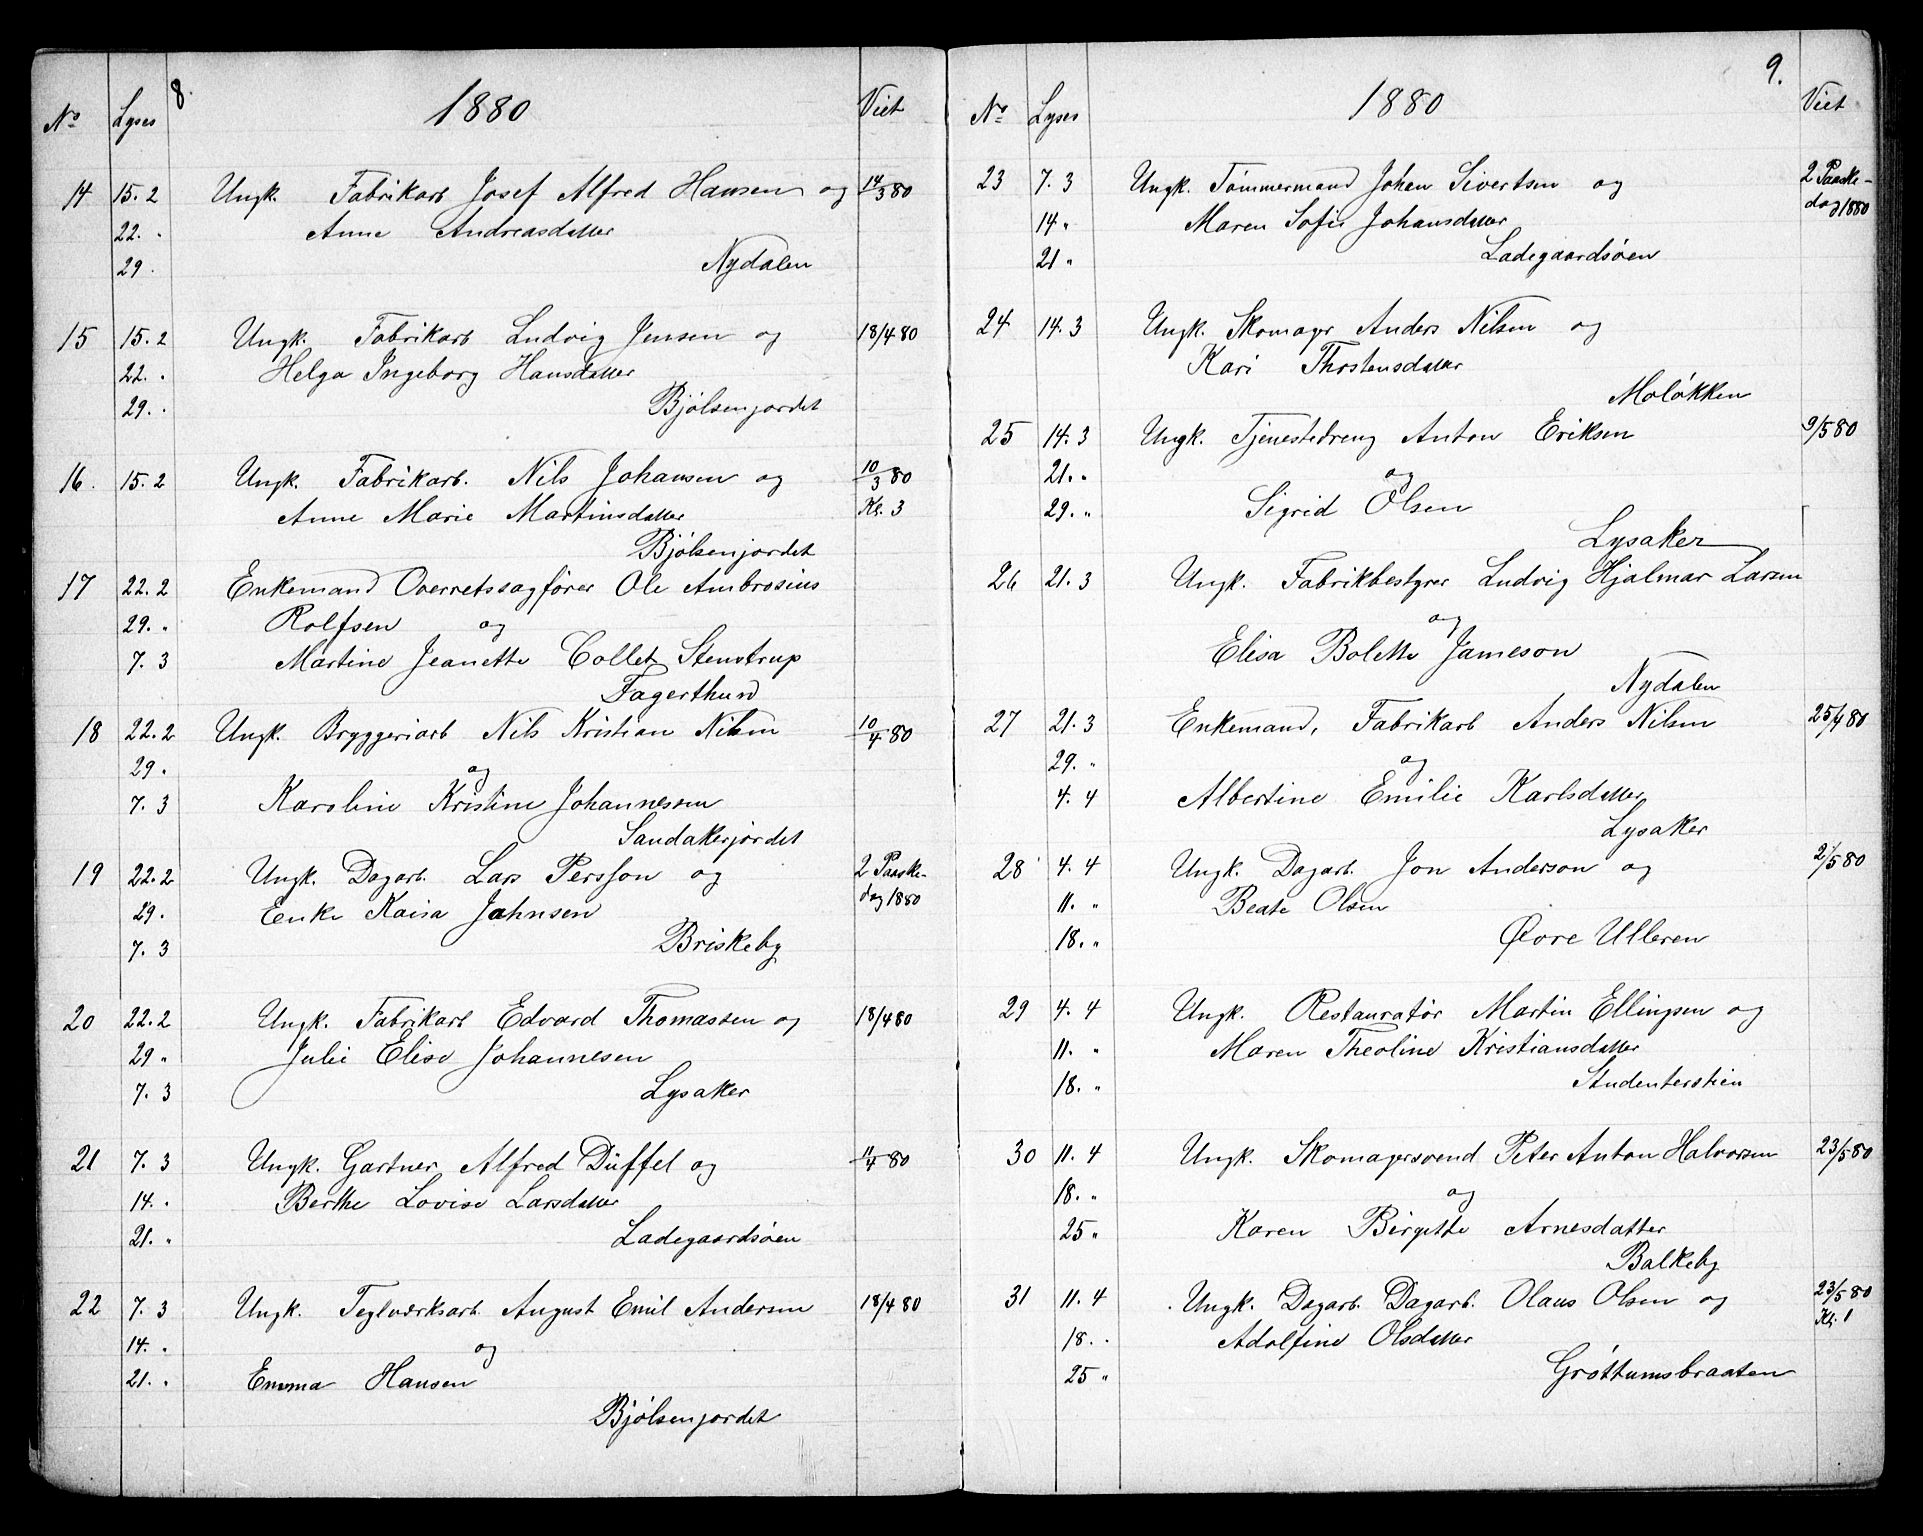 8.
No Lyses 1880 Viet
14 15.2 Ungk. Fabrikarb Josef Alfred Hansen og 14/3 80
22. " Anne Andreasdatter
29. Nydalen
15 15.2 Ungk. Fabrikarb Ludvig Jensen og 18/4 80
22. " Helga Ingeborg Hansdatter
29. " Bjølsenjordet
16. 15.2 Ungk. Fabrikarb. Nils Johansen og 10/3 80
Anne Marie Martinsdatter Kl. 3
Bjølsenjordet
17 22.2 Enkemand Overretssagfører Ole Ambrosius
29. " Rolfsen og
7. 3 Martine Jeanette Collet Stenstrup
Fagerthun
18 22.2 Ungk. Bryggeriarb Nils Kristian Nilsen 10/4 80
29 " og
7. 3 Karoline Kristine Johannessen
Sandakerjordet
19 22.2 Ungk. Dagarb. Lars Persson og 2 Paaske-
29. Enke Kaisa Johnsen dag 1880
7. 3 Briskeby
20 22.2 Ungk. Fabrikarb Edvard Thomassen og 18/4 80
29 " Julie Elise Johannesen
7. 3 Lysaker
21 7. 3 Ungk. Gartner Alfred Düffel og 11/4 80
14. " Berthe Lovise Larsdatter
21. " Ladegaardsøen
22 7. 3 Ungk. Teglværksarb. August Emil Andersen 18/4 80
14. " og
21. " Emma Hansen
Bjølsenjordet
9.
No Lyses 1880 Viet
23 7. 3 Ungk. Tømmermand Johan Sivertsen og 2 Paaske-
14 " Maren Sofie Johansdatter dag 1880
21 " Ladegaardsøen
24 14. 3 Ungk. Skomager Anders Nilsen og
Kari Thostensdatter
Moløkken
25 14. 3 Ungk. Tjenestedreng Anton Eriksen 9/5 80
21. " og
29. " Sigrid Olsen
Lysaker
26 21. 3 Ungk. Fabrikbestyrer Ludvig Hjalmar Larsen
og
Elisa Bolette Jameson
Nydalen
27 21. 3 Enkemand, Fabrikarb Anders Nilsen 25/4 80
29. " og
4. 4 Albertine Emilie Karlsdatter
Lysaker
28 4. 4 Ungk. Dagarb. Jon Anderson og 2/5 80
11. " Beate Olsen
18. " Øvre Ulleren
29 4. 4 Ungk. Restauratør Martin Ellingsen og
11. " Maren Theoline Kristiansdatter
18. " Studenterstien
30 11. 4 Ungk. Skomagersvend Peter Anton Halvorsen 23/5 80
18. " og
25 " Karen Birgitte Arnesdatter
Balkeby
31 11. 4 Ungk. Dagarb. Dagarb. Olaus Olsen og 23/5 80
18. " Adolfine Olsdatter Kl. 1
25 " Grøttumsbraaten